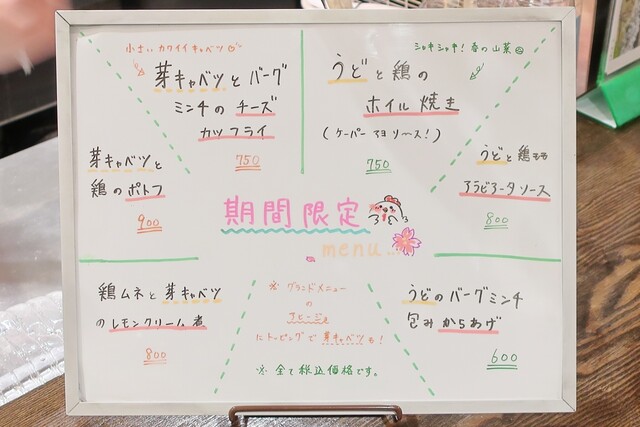 小さいカワイイキャベツ
芽キャベツとバーグ
ミンチのチーズ
カツフライ
750
シャキシャキ!春の山菜
うどと鶏の
ホイル焼き
(ケーパーマヨソース!)
750
芽キャベツと
鶏のポトフ
900
うどと鶏モモ
アラビアータソース
800
期間限定
menu...
鶏ムネと芽キャベツ
のレモンクリーム煮
800
※グランドメニュー
の
にトッピングで芽キャベツも!
※全て税込価格です。
うどのバーグミンチ
包みからあげ
600